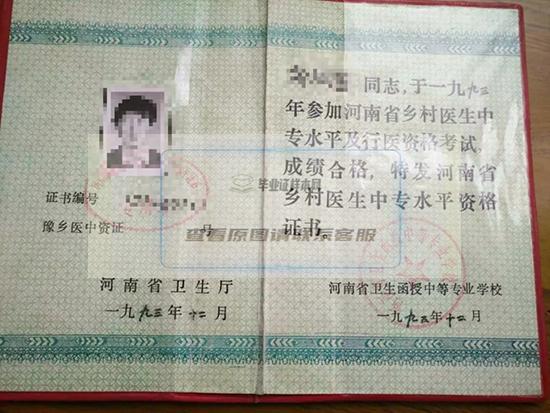 证书编号
豫乡医中资证 号
河南省卫生厅
一九九三年十二月
同志,于一九九三
年参加河南省乡村医生中
专水平及行医资格考试,
成绩合格,特发河南省
乡村医生中专水平资格
证书。
河南省卫生函授中等专业学校
一九九三年十二月
毕业证样本网
查看原图请联系客服